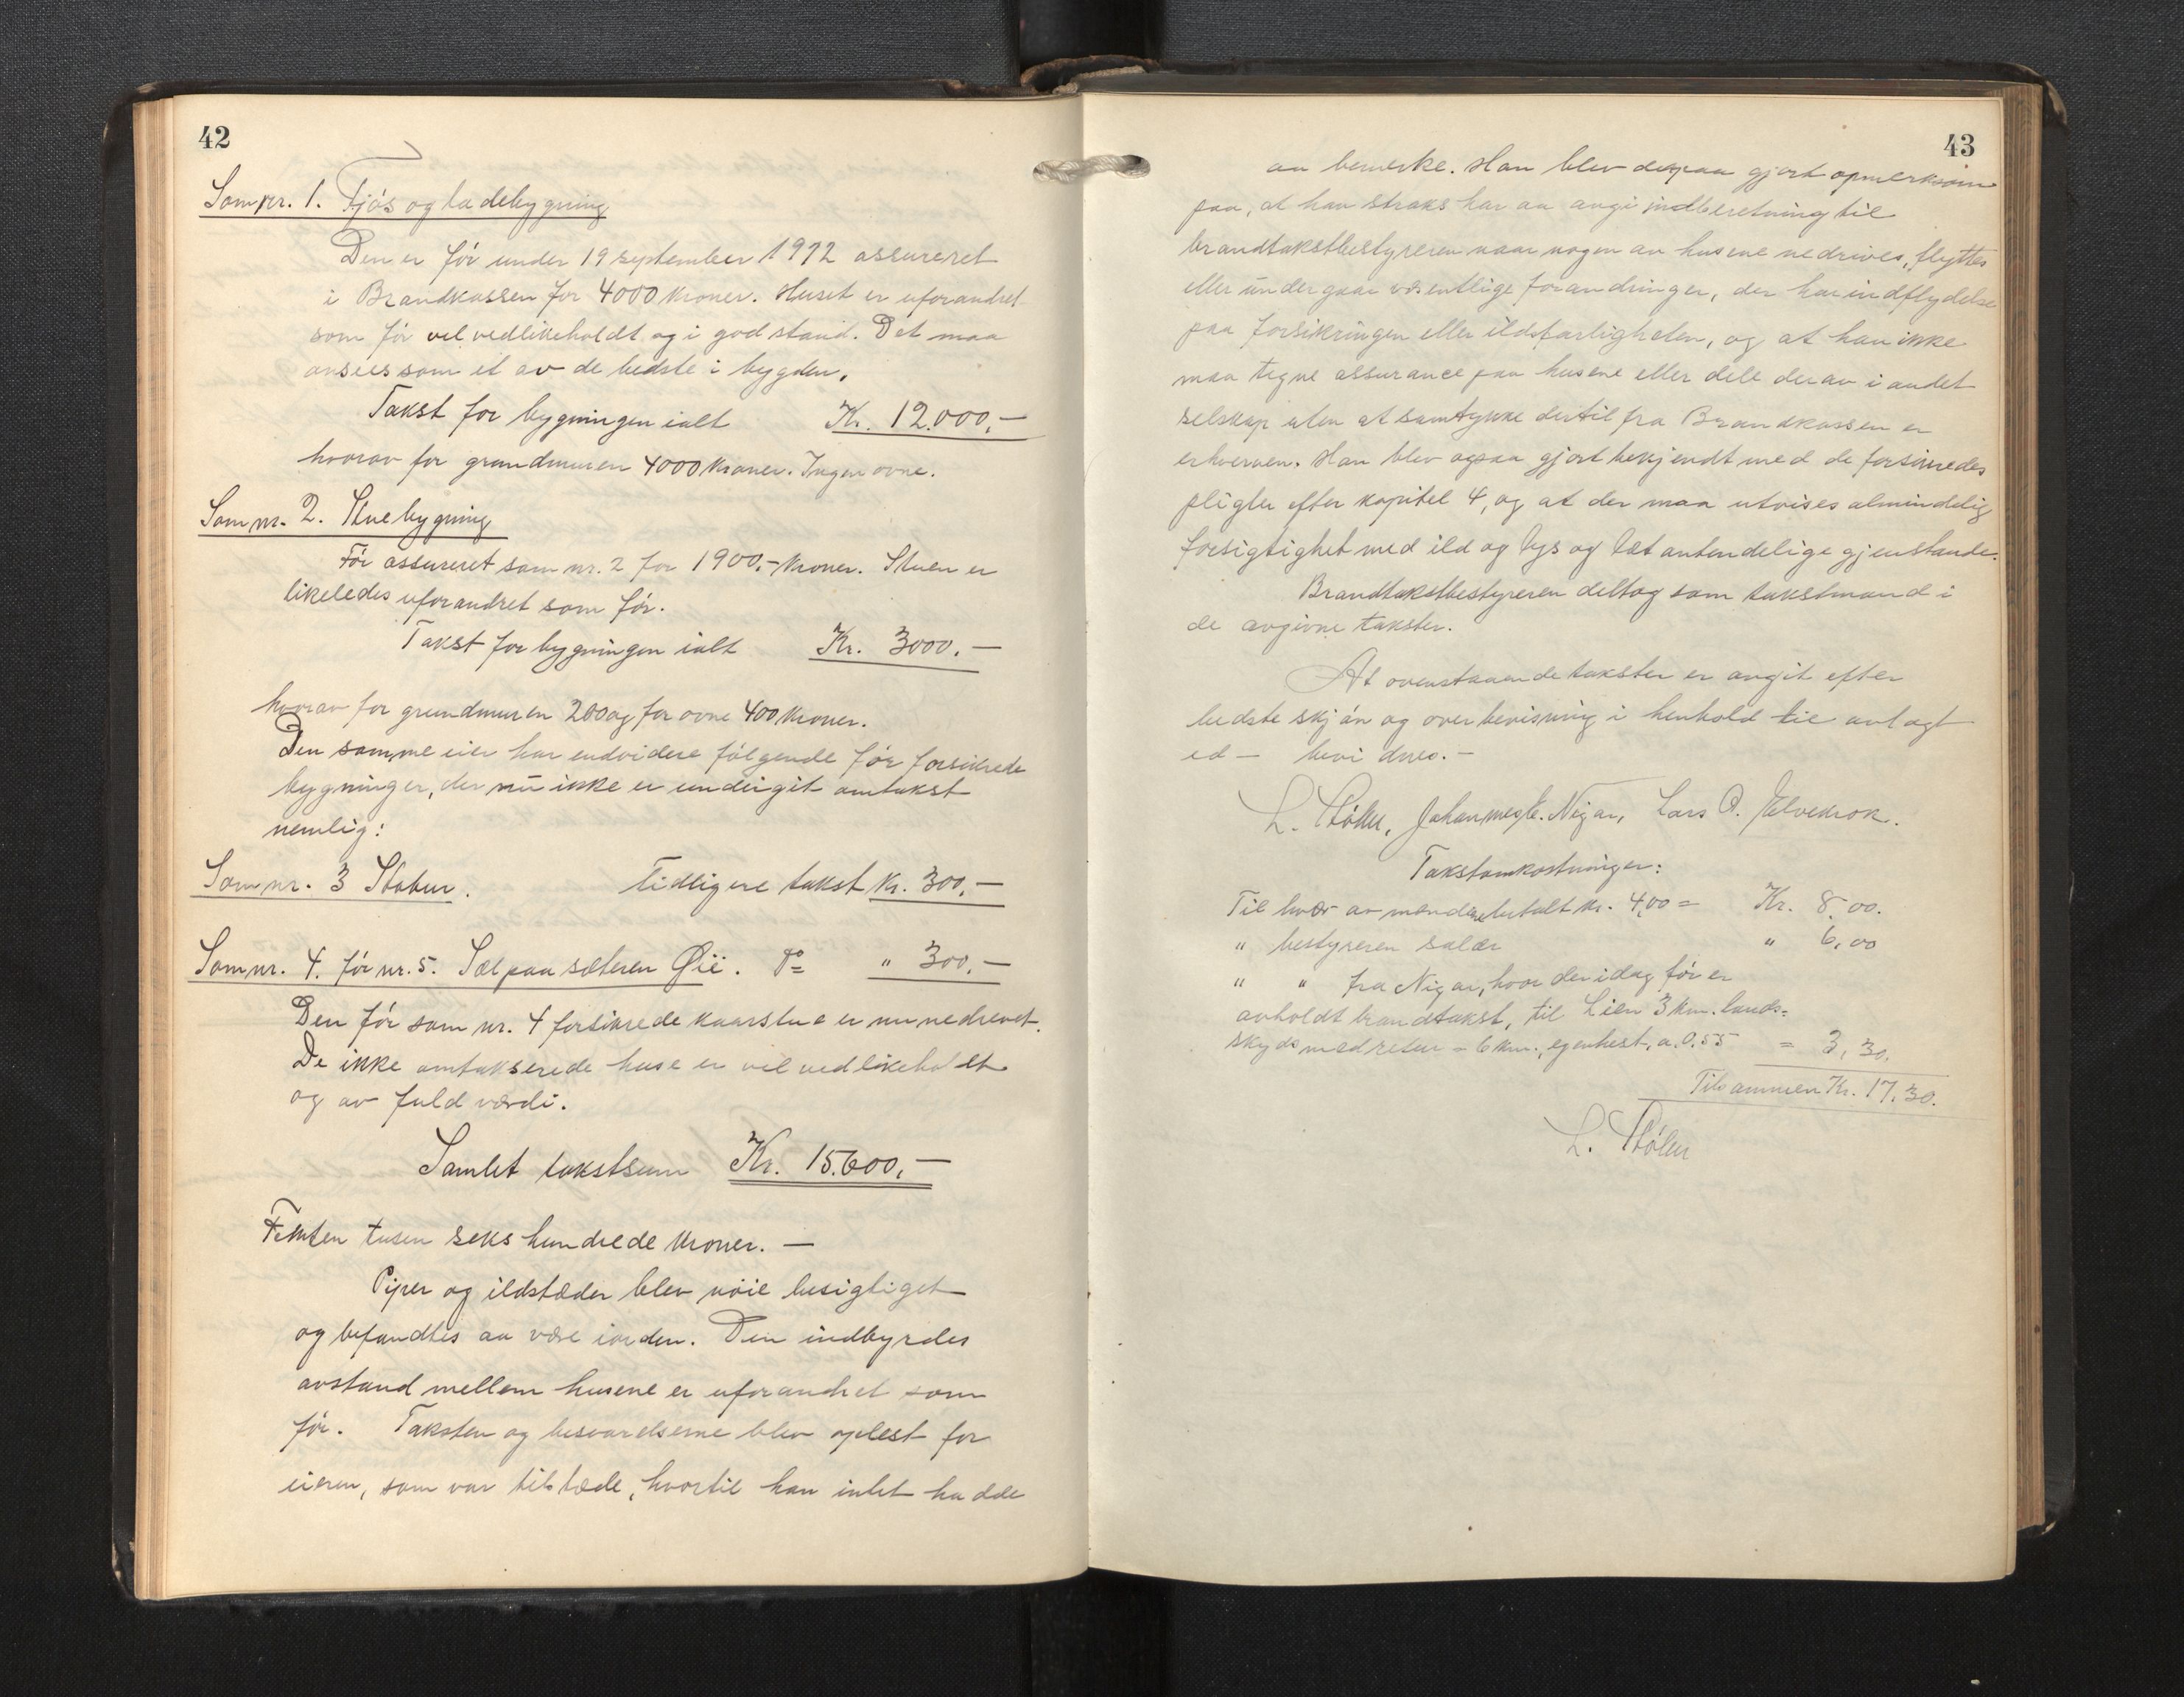 42
Som nr. 1. Fjøs og ladebygning
Den er før under 19 september 1912 assureret
i Brandkassen for 4000 kroner. Huset er uforandret
som før vel vedlikeholdt og i god stand. Det maa
ansees som et av de bedste i bygden.
Takst for bygningen ialt Kr. 12.000,-
hvorav for grundmuren 4000 kroner. Ingen ovne.
Som nr. 2. Stuebygning
Før assureret som nr. 2 for 1900,- kroner. Stuen er
likeledes uforandret som før.
Takst for bygningen ialt Kr. 3000,-
hvorav for grundmuren 200 og for ovne 400 kroner.
Den samme eier har endvidere følgende før forsikrede
bygninger, der nu ikke er undergit omtakst
nemlig:
Som nr. 3 Stabur. tidligere takst Kr. 300,-
Som nr. 4. før nr. 5. Sæl paa sæteren Øïe. do " 300,-
Den før som nr. 4 forsikrede kaarstue er nu nedrevet.
De ikke omtakserede huse er vel vedlikeholdt
og av fuld værdi.
Samlet takstsum Kr. 15.600,-
Femten tusen seks hundrede kroner. -
Piper og ildstæder blev nøie besigtiget
og befandtes aa være iorden. Den indbyrdes
avstand mellem husene er uforandret som
før. Taksten og besvarelserne blev oplest for
eieren, som var tilstæde, hvortil han intet hadde
43
aa bemerke. Han blev derpaa gjort opmerksom
paa, at han straks har aa angi indberetning til
brandtakstbestyreren naar nogen av husene nedrives, flyttes
eller undergaar væsentlige forandringer, der har indflydelse
paa forsikringen eller ildsfarligheten, og at han ikke
maa tegne assurance paa husene eller dele derav i andet
selskap uten at samtykke dertil fra Brandkassen er
erhvervet. Han blev ogsaa gjort bekjendt med de forsikredes
pligter efter kapitel 4, og at der maa utvises almindelig
forsigtighet med ild og lys og let antendelige gjenstande.
Brandtakstbestyreren deltog som takstmand i
de avgivne takster.
At ovenstaaende takster er avgit efter
bedste skjøn og overbevisning i henhold til avlagt
ed - bevidnes. -
L. Støler, Johannes Nigar, Lars O. Jelvekrok.
Takstomkostninger:
Til hver av mændene betalt kr. 4,00 = Kr. 8,00.
" bestyreren salær " 6,00
" " fra Nigar, hvor der idag før er
avholdt brandtakst, til Lien 3 km. lands=
skyds med retur = 6 km., egen hest, a. 0.55 = 3,30.
Tilsammen Kr. 17,30.
L. Støler